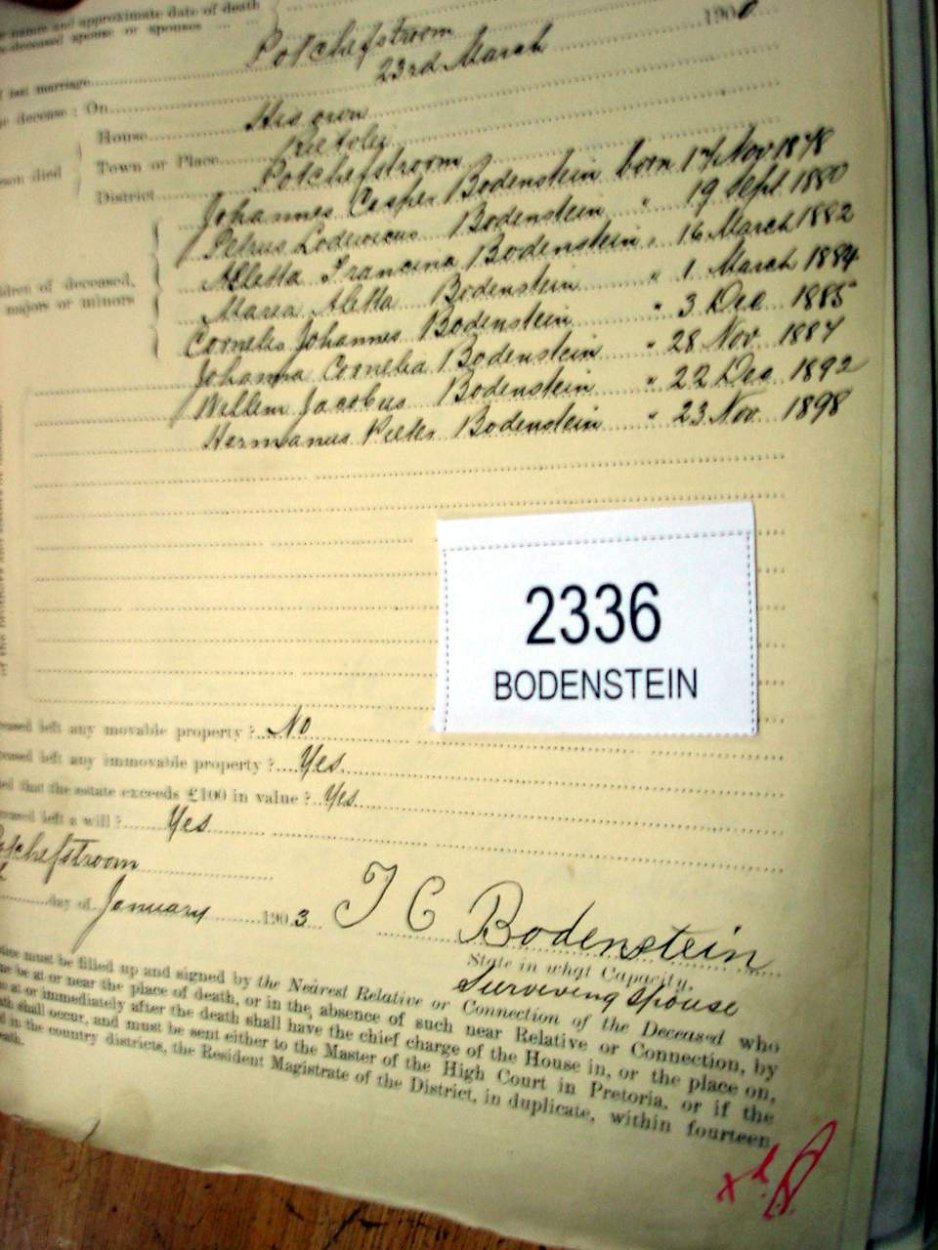 name and approximate date of death
deceased spouse or spouses
last marriage Potchefstroom
decease : On 23rd March 1900
House His own
died
Town or Place
District Potchefstroom
Johannes Casper Bodenstein born 17 Nov 1878
Petrus Lodewicus Bodenstein " 19 Sept 1880
Alletta Francina Bodenstein " 16 March 1882
of deceased, Maria Aletta Bodenstein " 1 March 1884
majors or minors Cornelis Johannes Bodenstein " 3 Dec 1885
Johanna Cornelia Bodenstein " 28 Nov 1887
Willem Jacobus Bodenstein " 22 Dec 1892
Hermanus Pieter Bodenstein " 23 Nov 1898
2336
BODENSTEIN
left any movable property ? No
left any immovable property ? Yes
that the estate exceeds £100 in value ? Yes
left a will ? Yes
Potchefstroom
day of January 1903 J C Bodenstein
State in what Capacity.
Surviving Spouse
must be filled up and signed by the Nearest Relative or Connection of the Deceased who
be at or near the place of death, or in the absence of such near Relative or Connection, by
at or immediately after the death shall have the chief charge of the House in, or the place on,
shall occur, and must be sent either to the Master of the High Court in Pretoria, or if the
in the country districts, the Resident Magistrate of the District, in duplicate, within fourteen